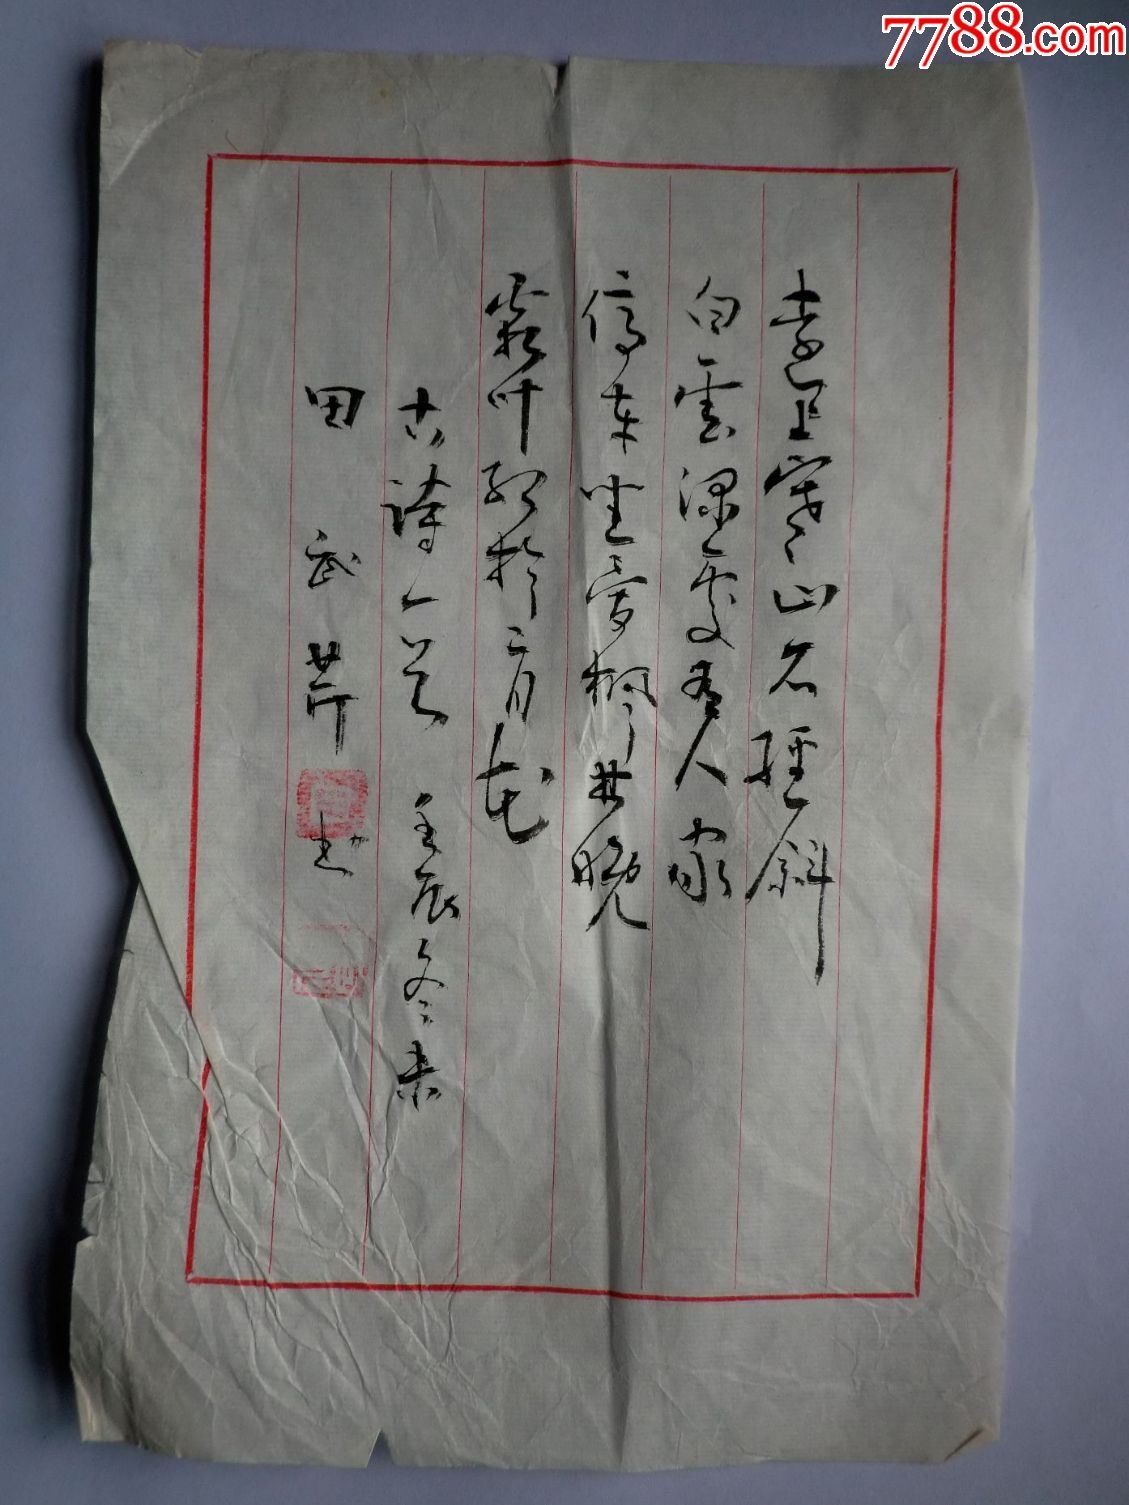 7788.com
遠上寒山石径斜
白雲深處有人家
停车坐爱枫林晚
霜叶红於二月花
古诗一首 壬辰冬末
田武芹书